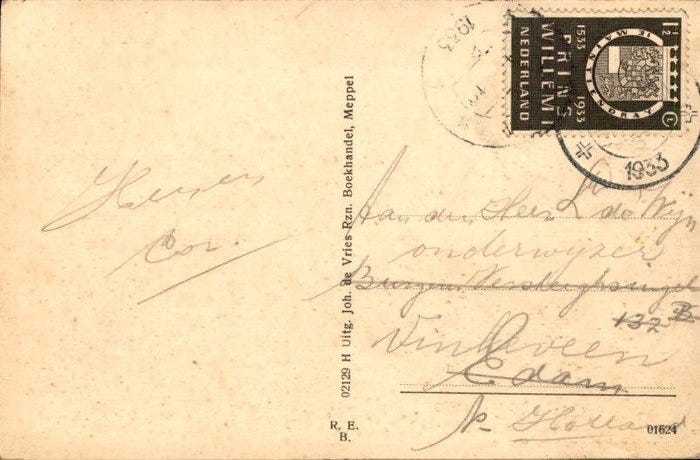 1½ C
JE MAINTIENDRAY
1533 1933
PRINS
WILLEM I
NEDERLAND
1933
1933
Cor.
02129 H Uitg. Joh. de Vries Rzn. Boekhandel, Meppel
Aan den Heer L de Wijn
onderwijzer
132 B
Vinkeveen
Edam
N- Holland
R. E.
B.
01624